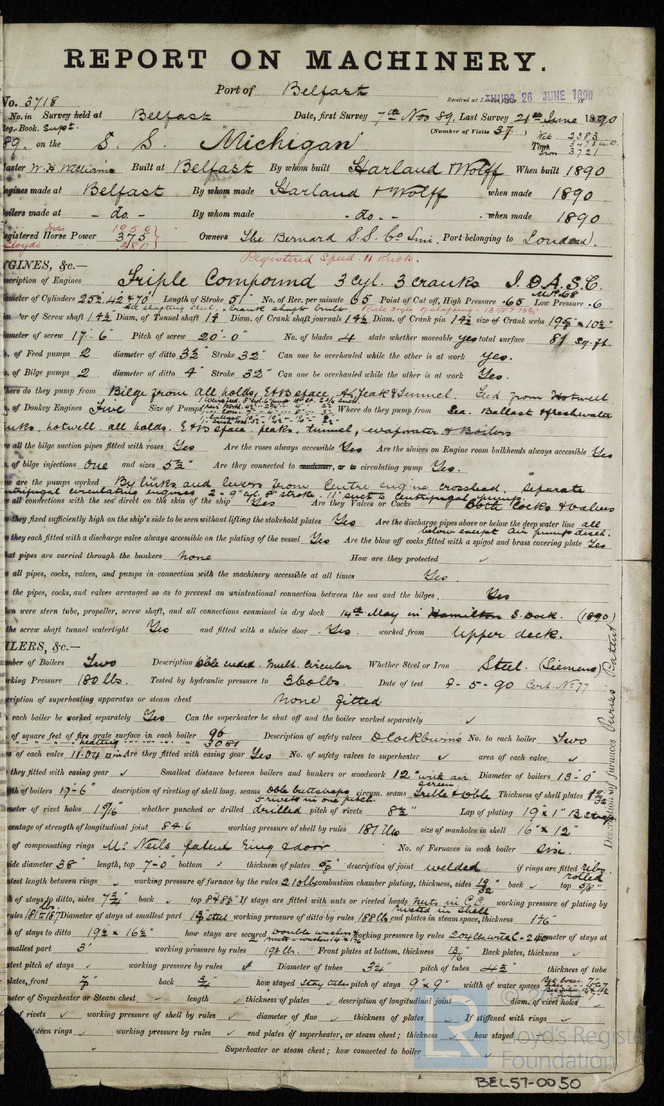 REPORT ON MACHINERY.
Port of Belfast
Received at THURS 26 JUNE 1890
No. 3718
No. in Survey held at Belfast Date, first Survey 7th Nov 89. Last Survey 21st June 1890
Reg. Book. Supt. (Number of Visits 37)
89. on the S. S. Michigan Tons
Net 2383
Gross
3721
Master W. H. Williams Built at Belfast By whom built Harland & Wolff When built 1890
Engines made at Belfast By whom made Harland & Wolff when made 1890
Boilers made at - do - By whom made - do. - when made 1890
Registered Horse Power 375 Owners The Bernard S.S. Co Lim. Port belonging to London.
Registered Speed 11 Knots.
ENGINES, &c.—
Description of Engines Triple Compound 3 cyl. 3 cranks
Diameter of Cylinders 25½ 42 & 70" Length of Stroke 51" No. of Rev. per minute 65 Point of Cut off, High Pressure .65 Low Pressure .6
Diameter of Screw shaft 14½ Diam. of Tunnel shaft 14 Diam. of Crank shaft journals 14½ Diam. of Crank pin 14½ size of Crank webs 19½ × 10½"
Diameter of screw 17'-6" Pitch of screw 20'-0" No. of blades 4 state whether moveable yes total surface 81 sq. ft.
No. of Feed pumps 2 diameter of ditto 3½" Stroke 32" Can one be overhauled while the other is at work yes.
No. of Bilge pumps 2 diameter of ditto 4" Stroke 32" Can one be overhauled while the other is at work Yes.
Where do they pump from Bilge from all holds, E&B space, Aft Peak & Tunnel. Feed from Hotwell
No. of Donkey Engines Five Size of Pumps Where do they pump from Sea. Ballast & freshwater
tanks, hotwell, all holds. E&B space. peaks. tunnel, evaporator & Boilers
Are all the bilge suction pipes fitted with roses Yes Are the roses always accessible Yes Are the sluices on Engine room bulkheads always accessible Yes
No. of bilge injections One and sizes 5½" Are they connected to condenser, or to circulating pump Yes.
How are the pumps worked By links and levers from Centre engine crosshead. Separate
centrifugal circulating engines 2 - 9" cyl. 8" stroke. 11" suct to Centrifugal pump.
Are all connections with the sea direct on the skin of the ship Yes Are they Valves or Cocks Both Cocks & valves
Are they fixed sufficiently high on the ship's side to be seen without lifting the stokehold plates Yes Are the discharge pipes above or below the deep water line all
below except Air pump disch.
Are they each fitted with a discharge valve always accessible on the plating of the vessel Yes Are the blow off cocks fitted with a spigot and brass covering plate Yes
What pipes are carried through the bunkers none How are they protected ✓
Are all pipes, cocks, valves, and pumps in connection with the machinery accessible at all times Yes.
Are the pipes, cocks, and valves arranged so as to prevent an unintentional connection between the sea and the bilges Yes
When were stern tube, propeller, screw shaft, and all connections examined in dry dock 14th May in Hamilton G. Dock. (1890)
Is the screw shaft tunnel watertight Yes and fitted with a sluice door Yes. worked from Upper deck.
BOILERS, &c.—
Number of Boilers Two Description Dble ended. Mult. Circular Whether Steel or Iron Steel (Siemens)
Working Pressure 180 lbs. Tested by hydraulic pressure to 360 lbs. Date of test 9-5-90 Cert. No 77
Description of superheating apparatus or steam chest None fitted
Can each boiler be worked separately Yes Can the superheater be shut off and the boiler worked separately ✓
No. of square feet of fire grate surface in each boiler 96 Description of safety valves Cockburn's No. to each boiler Two
heating 3081
Area of each valve 11.04 Are they fitted with easing gear Yes No. of safety valves to superheater ✓ area of each valve ✓
Are they fitted with easing gear ✓ Smallest distance between boilers and bunkers or woodwork 12" with air screen. Diameter of boilers 13-0"
Length of boilers 19-6" description of riveting of shell long. seams Dble buttstraps circum. seams Treble & Dble Thickness of shell plates
5 rivets in one pitch.
Diameter of rivet holes 1 9/16 whether punched or drilled drilled pitch of rivets 8¾" Lap of plating 19 × 1"
Percentage of strength of longitudinal joint 84.6 working pressure of shell by rules 187 lbs size of manholes in shell 16" × 12"
Size of compensating rings McNeils patent Ring & door No. of Furnaces in each boiler six.
Outside diameter 38" length, top 7-0" bottom ✓ thickness of plates description of joint welded if rings are fitted
Greatest length between rings ✓ working pressure of furnace by the rules 210 lb combustion chamber plating, thickness, sides 19/32 back ✓ top
Pitch of stays to ditto, sides 7¾" back ✓ top If stays are fitted with nuts or riveted heads Nuts in C.C. working pressure of plating by
riveted in shell
rules 181 & 187 Diameter of stays at smallest part working pressure of ditto by rules 188 lb end plates in steam space, thickness
Pitch of stays to ditto 19½ × 16½" how stays are secured double nuts working pressure by rules diameter of stays at
smallest part 3" working pressure by rules 198 lb. Front plates at bottom, thickness 13/16 Back plates, thickness ✓
Greatest pitch of stays ✓ working pressure by rules ✓ Diameter of tubes 3¼" pitch of tubes 4½" thickness of tube
plates, front back ¾" how stayed stay tubes pitch of stays 9" × 9" width of water spaces
Diameter of Superheater or Steam chest ✓ length thickness of plates description of longitudinal joint diam. of rivet holes
of rivets working pressure of shell by rules diameter of flue thickness of plates If stiffened with rings
between rings working pressure by rules end plates of superheater, or steam chest; thickness how stayed
Superheater or steam chest; how connected to boiler
Description of furnaces Purves Patent
LR
Lloyd's Register
Foundation
BEL57-0050